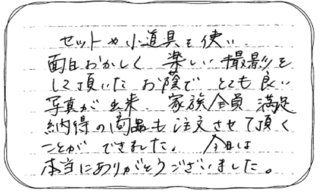 セットや小道具を使い
面白おかしく 楽しい撮影を
して頂いたお蔭で とても良い
写真が出来、家族全員 満足
納得の商品も注文させて頂く
ことができました。 今日は
本当にありがとうございました。